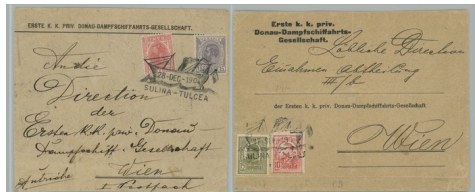 ERSTE K. K. PRIV. DONAU-DAMPFSCHIFFAHRTS-GESELLSCHAFT.
An die
Direction
der
Ersten k.k. priv. Donau
Dampfschiff-Gesellschaft
Wien
Postfach
28-DEC-190
SULINA-TULCEA
Erste k. k. priv.
Donau-Dampfschiffahrts-
Gesellschaft.
Löbliche Direction
Einnahmen Abtheilung
der Ersten k. k. priv. Donau-Dampfschiffahrts-Gesellschaft
Wien